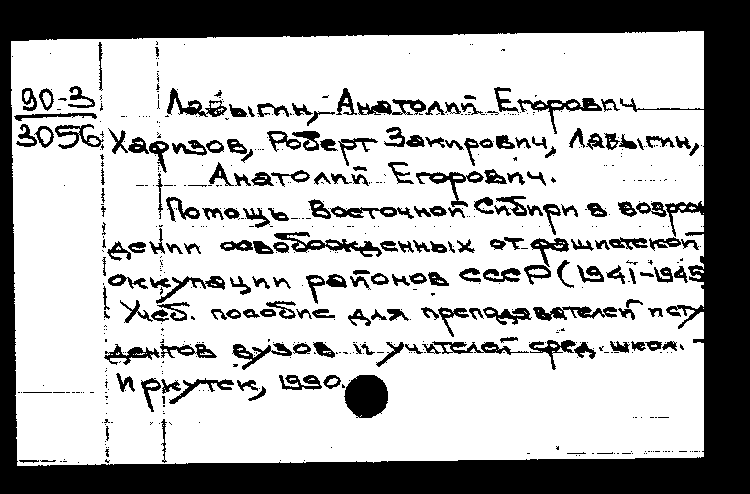 90-3
3056
Лавыгин, Анатолий Егорович
Хафизов, Роберт Закирович, Лавыгин,
Анатолий Егорович.
Помощь Восточной Сибири в возрож
дении освобожденных от фашистской
оккупации районов СССР (1941-1945
Учеб. пособие для преподавателей и сту
дентов вузов и учителей сред. школ. -
Иркутск, 1990.